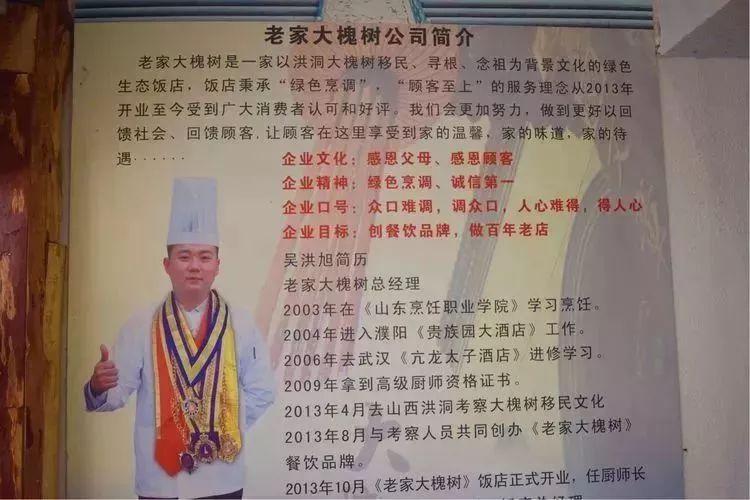 老家大槐树公司简介
老家大槐树是一家以洪洞大槐树移民、寻根、念祖为背景文化的绿色
生态饭店，饭店秉承“绿色烹调”，“顾客至上”的服务理念从2013年
开业至今受到广大消费者认可和好评。我们会更加努力，做到更好以回
馈社会、回馈顾客,让顾客在这里享受到家的温馨，家的味道，家的待
遇······
企业文化：感恩父母、感恩顾客
企业精神：绿色烹调、诚信第一
企业口号：众口难调，调众口，人心难得，得人心
企业目标：创餐饮品牌，做百年老店
吴洪旭简历
老家大槐树总经理
2003年在《山东烹饪职业学院》学习烹饪。
2004年进入濮阳《贵族园大酒店》工作。
2006年去武汉《亢龙太子酒店》进修学习。
2009年拿到高级厨师资格证书。
2013年4月去山西洪洞考察大槐树移民文化
2013年8月与考察人员共同创办《老家大槐树》
餐饮品牌。
2013年10月《老家大槐树》饭店正式开业，任厨师长